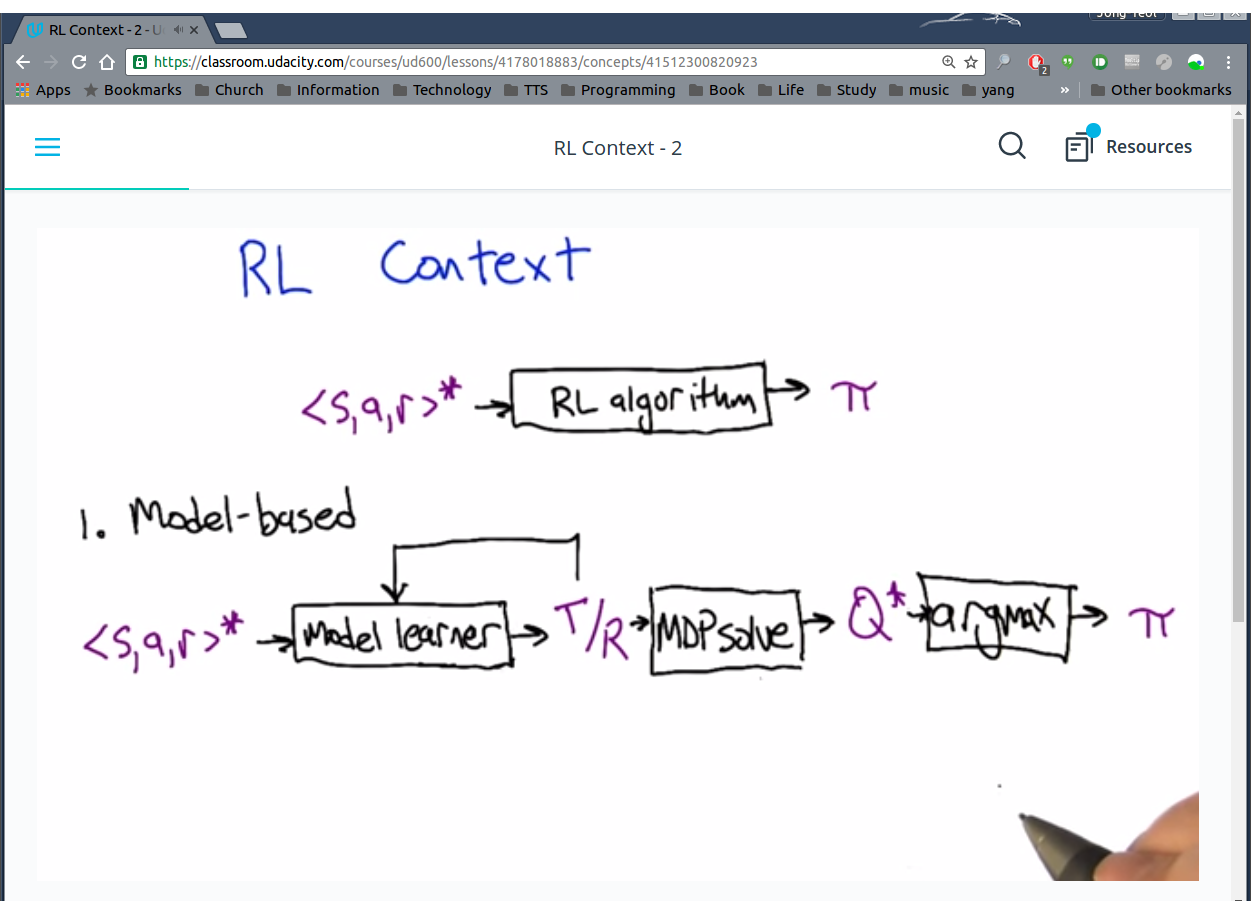 RL Context - 2 - U
Jong Yeol
https://classroom.udacity.com/courses/ud600/lessons/4178018883/concepts/41512300820923
2
Apps Bookmarks Church Information Technology TTS Programming Book Life Study music yang » Other bookmarks
RL Context - 2
Resources
RL Context
<s,a,r>* → RL algorithm → π
1. Model-based
<s,a,r>* → Model learner → T/R → MDP solve → Q* → argmax → π